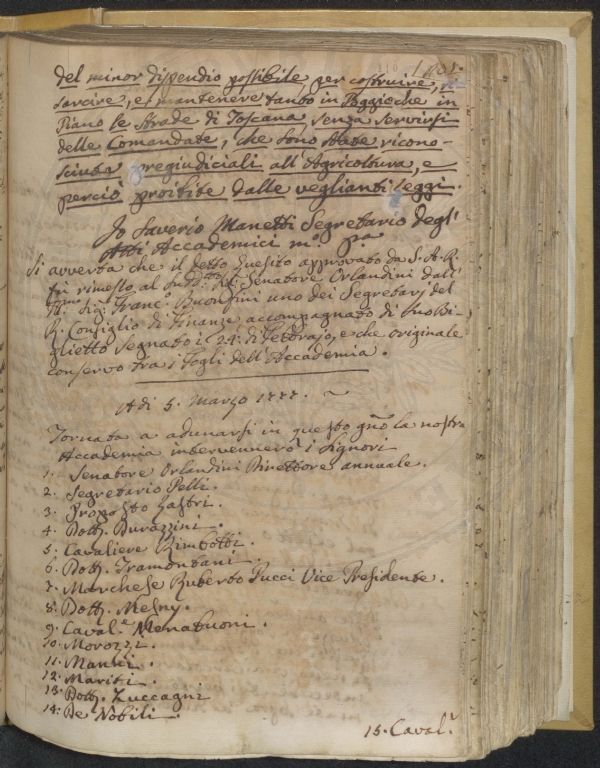 del minor dispendio possibile per costruire, ri
sarcire, e mantenere tanto in Poggio che in
Piano le Strade di Toscana, senza servirsi
delle Comandate, che sono state ricono-
sciute pregiudiciali all'Agricoltura, e
perciò proibite dalle veglianti Leggi.
Io Saverio Manetti Segretario degl'
Atti Accademici m.º p.ra
Si avverta che il detto Quesito approvato da S. A. R.
fu rimesso al Sudd. Senatore Orlandini dall'
Sig. Franc.º Buonfini uno dei Segretarj del
R. Consiglio di Finanze accompagnato di Suo Bi-
glietto segnato i 24. di Febbrajo, e che originale
conservo tra i Fogli dell'Accademia.
Adi 5. Marzo 1777.
Tornata a adunarsi in questo gno la nostra
Accademia intervennero i Signori
1. Senatore Orlandini Direttore annuale.
2. Segretario Pelli.
3. Proposto Lastri.
4. Dott. Durazzini.
5. Cavaliere Bimbotti.
6. Dott. Tramontani.
7. Marchese Ruberto Pucci Vice Presidente.
8. Dott. Mesny.
9. Caval.e Menabuoni.
10. Morozzi.
11. Manni.
12. Mariti.
13. Dott. Zuccagni
14. De Nobili.
15. Caval.